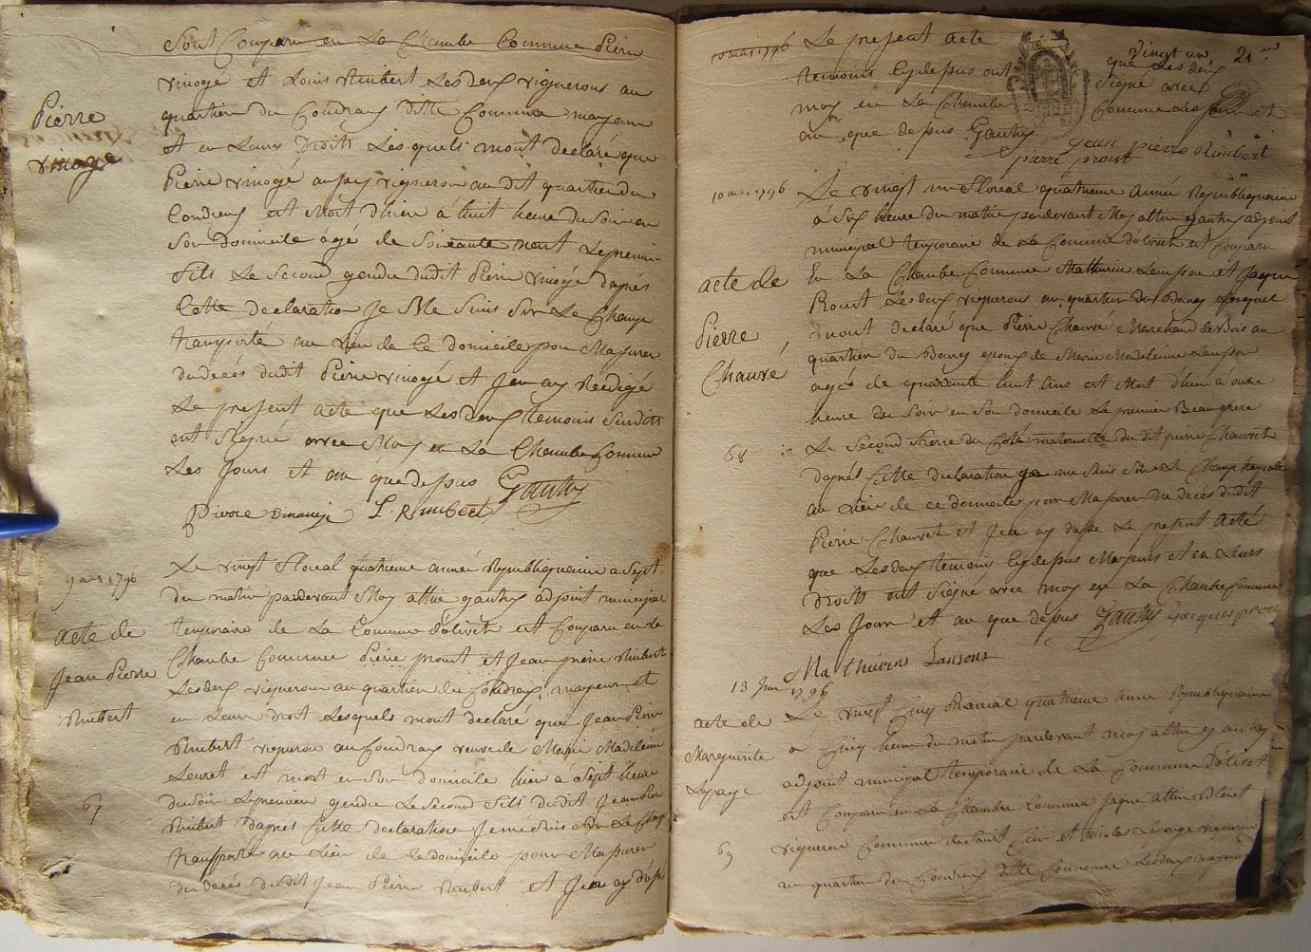 Sont Comparu en La Chambe Commune Pierre
vinoge et Louis Rimbert Lesdeux vignerons au
quartier du Coudray ditte Commune majeurs
et en Leurs Droits Lesquels m'ont declaré que
Pierre vinogé aussy vigneron au dit quartier du
Coudray est Mort d'hier à huit heure du Soir en
Son Domicile âgé de Soixante Le premier
Fils Le Second gendre dudit Pierre vinogé dapres
Cette declaration Je Me Suis Sur Le Champ
transporté au Lieu de Ce domicile pour M'assurer
du decés dudit Pierre vinogé et J'en ay Redigé
Le present acte que Lesdeux temoins Susdits
ont Signé avec Moy en La Chambe Commune
Les Jours et an que dessus Gautry
Pierre vinoge L. Rimbert
Pierre
vinoge
9 mai 1796
acte de
Jean Pierre
Rimbert
67
Le vingt Floreal quatrieme année Republiquenne a Sept
du matin pardevant Moy gautry adjoint municipal
temporaire de La Commune d'olivet est Comparu en La
Chambe Commune Pierre prout et Jean pierre Rimbert
Lesdeux vigneron au quartier du Coudray majeurs et
en Leurs droit Lesquels m'ont declaré que Jean Pierre
Rimbert vigneron au Coudray veuve de Marie Madeleine
Louret est mort en Son domicile hier a Sept heure
du Soir Lepremier gendre Le Second Fils dudit Jean Pierre
Rimbert dapres Cette declaration Je me suis Sur Le Champ
transporté au Lieu de Ce domicile pour M'assurer
du decés dudit Jean Pierre Rimbert et J'en ay dressé
10 mai 1796 Le present acte
vingt un 21
temoins Cydessus ont que Lesdeux
Signé avec
moy en La Chambe Commune Les Jour et
an que dessus Gautry Jean pierre Rimbert
pierre prout
10 mai 1796
acte de
Pierre
Chauvé
68
Le vingt un Floreal quatrieme année Republiquenne
à Six heure du matin pardevant Moy gautry adjoint
municipal temporaire de La Commune d'olivet est Comparu
En La Chambe Commune Mathurin Lanson et Jaque
Prout Lesdeux vignerons au quartier du Bourg Lesquel
m'ont declaré que Pierre Chauvé Marchand au
quartier du Bourg epoux de Marie Madeleine Lanson
agés de quarante huit ans est Mort d'hier à onze
heure du Soir en Son domicile Le premier Beaufrere
Le Second Frere du Coté maternelle du dit pierre Chauvé
dapres Cette declaration je me Suis Sur Le Champ transporté
au Lieu de Ce domicile pour M'assurer du decés dudit
Pierre Chauvé et J'en ay dressé Le present acte
que Lesdeux temoins Cydessus Majeurs et en Leurs
droits ont Signé avec moy en La Chambe Commune
Les Jour et an que dessus Gautry Jacques prout
Mathurin Lansons
13 Juin 1796
acte de
Marguerite
Lepage
69
Le vingt Cinq Prairial quatrieme année Republiquenne
a Cinq heure du matin pardevant moy gautry
adjoint municipal temporaire de La Commune d'olivet
est Comparu en La Chambe Commune Jaque
vigneron Commune de et Lepage vigneron
au quartier du Coudray ditte Commune Lesdeux majeurs